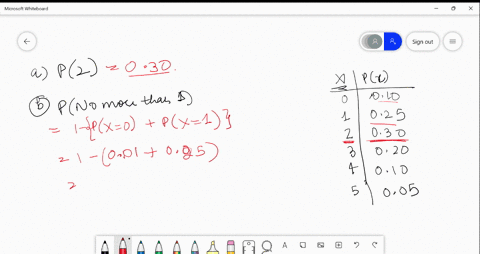 Microsoft Whiteboard
Sign out
a) P(2) = 0.30.
b) P(No more than 1)
= 1-{P(X=0) + P(X=1)}
= 1-(0.01 + 0.025)
=
X P(x)
0 0.10
1 0.25
2 0.30
3 0.20
4 0.10
5 0.05